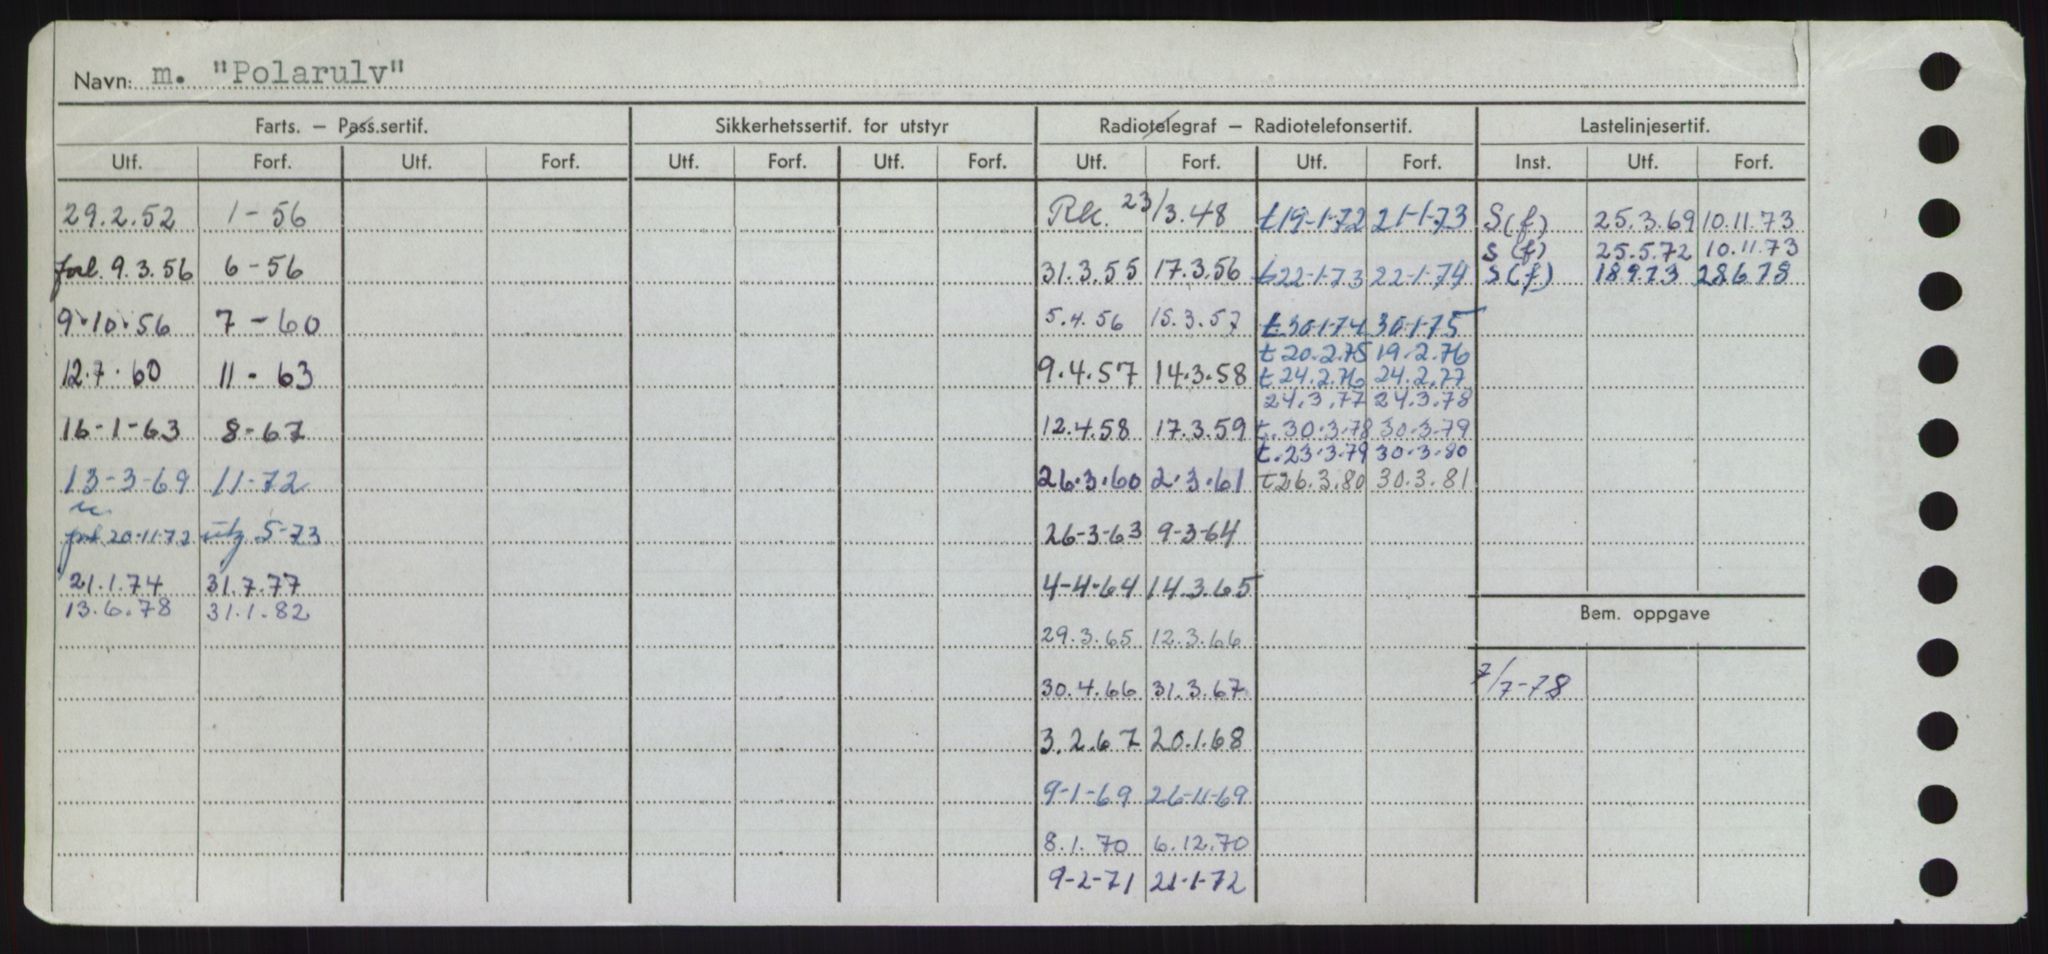 Navn: m. "Polarulv"
Farts. – Pass.sertif. Sikkerhetssertif. for utstyr Radiotelegraf – Radiotelefonsertif. Lastelinjesertif.
Utf. Forf. Utf. Forf. Utf. Forf. Utf. Forf. Utf. Forf. Utf. Forf. Inst. Utf. Forf.
29.2.52 1-56 RK. 23/3.48 t19-1-72 21-1-73 S(f) 25.3.69 10.11.73
S(f) 25.5.72 10.11.73
forl. 9.3.56 6-56 31.3.55 17.3.56 t22-1-73 22-1-74 S(f) 18973 28678
9.10.56 7-60 5.4.56 15.3.57 t.30-1-74 30-1-75
t 20.2.75 19.2.76
12.7.60 11-63 9.4.57 14.3.58 t 24.2.76 24.2.77
24.3.77 24.3.78
16-1-63 8-67 12.4.58 17.3.59 t.30.3.78 30.3.79
t.23.3.79 30.3.80
13-3-69 11-72 26.3.60 2.3.61 t26.3.80 30.3.81
20-11-72 utg 5-73 26-3-63 9-3-64
21.1.74 31.7.77 4-4-64 14.3.65
13.6.78 31.1.82 Bem. oppgave
29.3.65 12.3.66
30.4.66 31.3.67 7/7-78
3.2.67 20.1.68
9-1-69 26-11-69
8.1.70 6.12.70
9-2-71 21-1-72